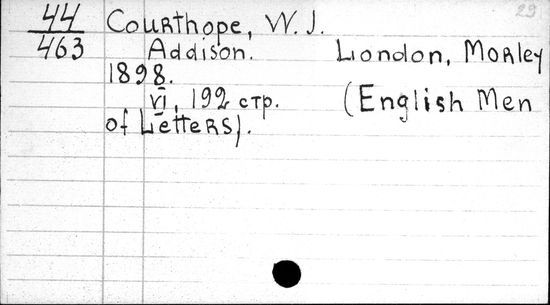 44 Courthope, W. J. 29
463 Addison. London, Morley
1898.
VI, 192 стр. (English Men
of Letters).